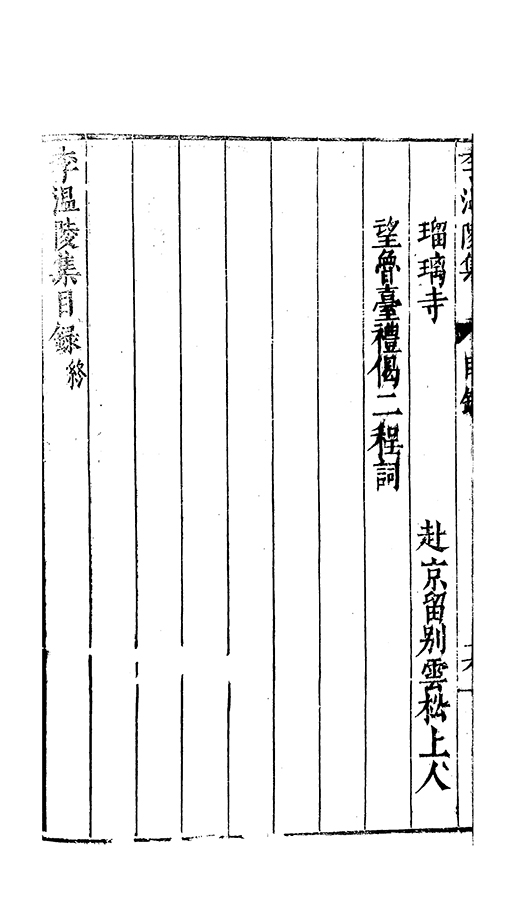 李溫陵集 目錄
瑠璃寺 赴京留別雲松上人
望魯臺禮偈二程詞
李溫陵集目録終